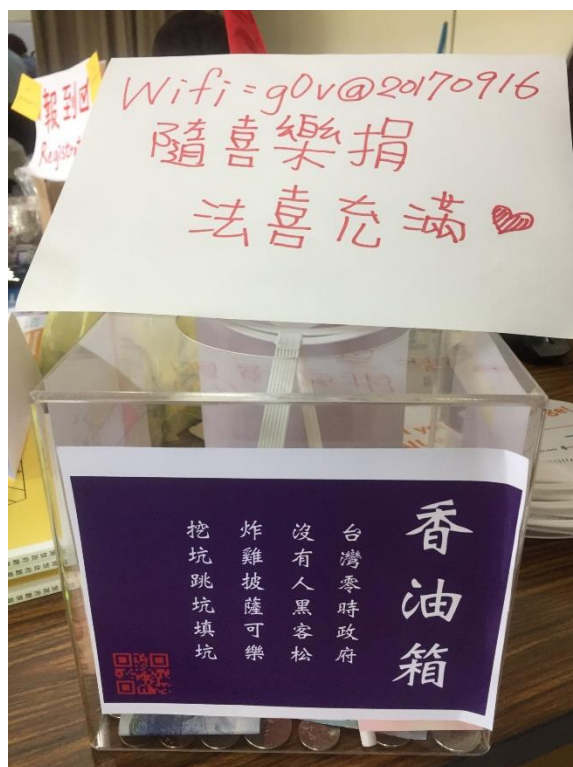 報到區
Registrat
Wifi=g0v@20170916
隨喜樂捐
法喜充滿
香油箱
台灣零時政府
沒有人黑客松
炸雞披薩可樂
挖坑跳坑填坑